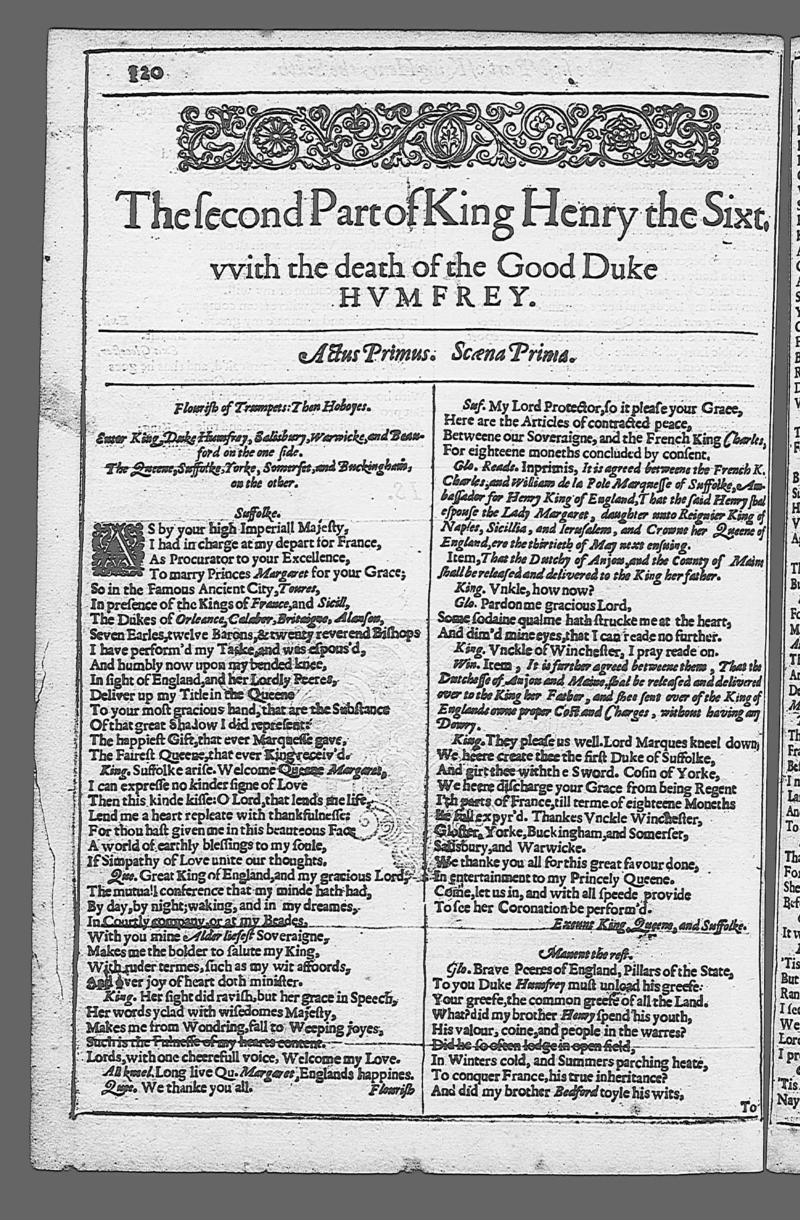 120
The ſecond Part of King Henry the Sixt,
vvith the death of the Good Duke
HVMFREY.
Actus Primus. Scœna Prima.
Flouriſh of Trumpets: Then Hoboyes.
Enter King, Duke Humfrey, Salisbury, Warwicke, and Beau-
ford on the one ſide.
The Queene, Suffolke, Yorke, Somerſet, and Buckingham,
on the other.
Suffolke.
AS by your high Imperiall Maieſty,
I had in charge at my depart for France,
As Procurator to your Excellence,
To marry Princes Margaret for your Grace;
So in the Famous Ancient City, Toures,
In preſence of the Kings of France, and Sicill,
The Dukes of Orleance, Calaber, Britaigne, Alanſon,
Seuen Earles, twelve Barons, & twenty reverend Biſhops
I have perform'd my Taske, and was eſpous'd,
And humbly now upon my bended knee,
In ſight of England, and her Lordly Peeres,
Deliver up my Title in the Queene
To your moſt gracious hand, that are the Subſtance
Of that great Shadow I did repreſent:
The happieſt Gift, that ever Marqueſſe gave,
The Faireſt Queene, that ever King receiv'd.
King. Suffolke ariſe. Welcome Queene Margaret,
I can expreſſe no kinder ſigne of Love
Then this kinde kiſſe: O Lord, that lends me life,
Lend me a heart repleate with thankfulneſſe:
For thou haſt given me in this beauteous Face
A world of earthly bleſſings to my ſoule,
If Simpathy of Love unite our thoughts.
Que. Great King of England, and my gracious Lord,
The mutuall conference that my minde hath had,
By day, by night; waking, and in my dreames,
In Courtly company, or at my Beades,
With you mine Alder liefeſt Soveraigne,
Makes me the bolder to ſalute my King,
With ruder termes, ſuch as my wit affoords,
And over joy of heart doth miniſter.
King. Her ſight did raviſh, but her grace in Speech,
Her words yclad with wiſedomes Majeſty,
Makes me from Wondring, fall to Weeping joyes,
Such is the Fulneſſe of my hearts content.
Lords, with one cheerefull voice, Welcome my Love.
All kneel. Long live Qu. Margaret, Englands happines.
Quee. We thanke you all. Flouriſh
Suf. My Lord Protector, ſo it pleaſe your Grace,
Here are the Articles of contracted peace,
Betweene our Soveraigne, and the French King Charles,
For eighteene moneths concluded by conſent.
Glo. Reads. Inprimis, It is agreed betweene the French K.
Charles, and William de la Pole Marqueſſe of Suffolke, Am-
baſſador for Henry King of England, That the ſaid Henry ſhal
eſpouſe the Lady Margaret, daughter unto Reignier King of
Naples, Sicillia, and Ieruſalem, and Crowne her Queene of
England, ere the thirtieth of May next enſuing.
Item, That the Dutchy of Anjou, and the County of Maine
ſhall be releaſed and delivered to the King her father.
King. Vnkle, how now?
Glo. Pardon me gracious Lord,
Some ſodaine qualme hath ſtrucke me at the heart,
And dim'd mine eyes, that I can reade no further.
King. Vnckle of Wincheſter, I pray reade on.
Win. Item, It is further agreed betweene them, That the
Dutcheſſe of Anjou and Maine, ſhal be releaſed and delivered
over to the King her Father, and ſhee ſent over of the King of
Englands owne proper Coſt and Charges, without having any
Dowry.
King. They pleaſe us well. Lord Marques kneel down,
We heere create thee the firſt Duke of Suffolke,
And girt thee with the Sword. Coſin of Yorke,
We heere diſcharge your Grace from being Regent
I'th parts of France, till terme of eighteene Moneths
Be full expyr'd. Thankes Vnckle Wincheſter,
Gloſter, Yorke, Buckingham, and Somerſet,
Salisbury, and Warwicke.
We thanke you all for this great favour done,
In entertainment to my Princely Queene.
Come, let us in, and with all ſpeede provide
To ſee her Coronation be perform'd.
Exeunt King, Queene, and Suffolke.
Manent the reſt.
Glo. Brave Peeres of England, Pillars of the State,
To you Duke Humfrey muſt unload his greefe:
Your greefe, the common greefe of all the Land.
What? did my brother Henry ſpend his youth,
His valour, coine, and people in the warres?
Did he ſo often lodge in open field,
In Winters cold, and Summers parching heate,
To conquer France, his true inheritance?
And did my brother Bedford toyle his wits,
To